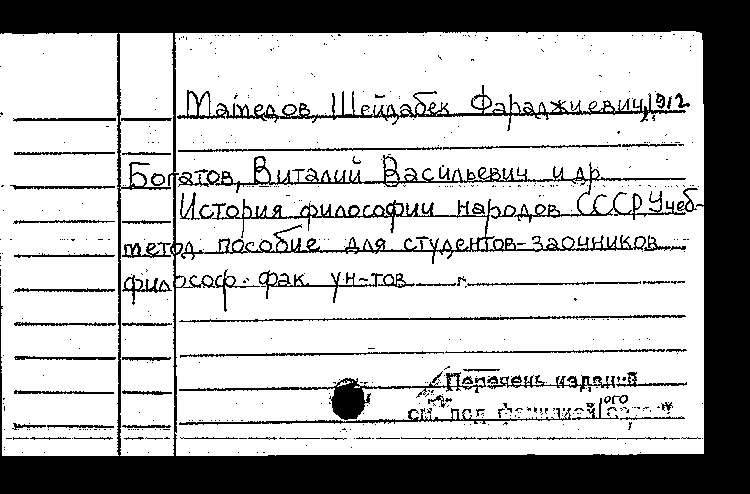 Мамедов, Шейдабек Фараджиевич, 1912
Богатов, Виталий Васильевич и др
История философии народов СССР Учеб-
метод. пособие для студентов-заочников
философ. фак. ун-тов
Перечень изданий
см. под фамилией 1ого